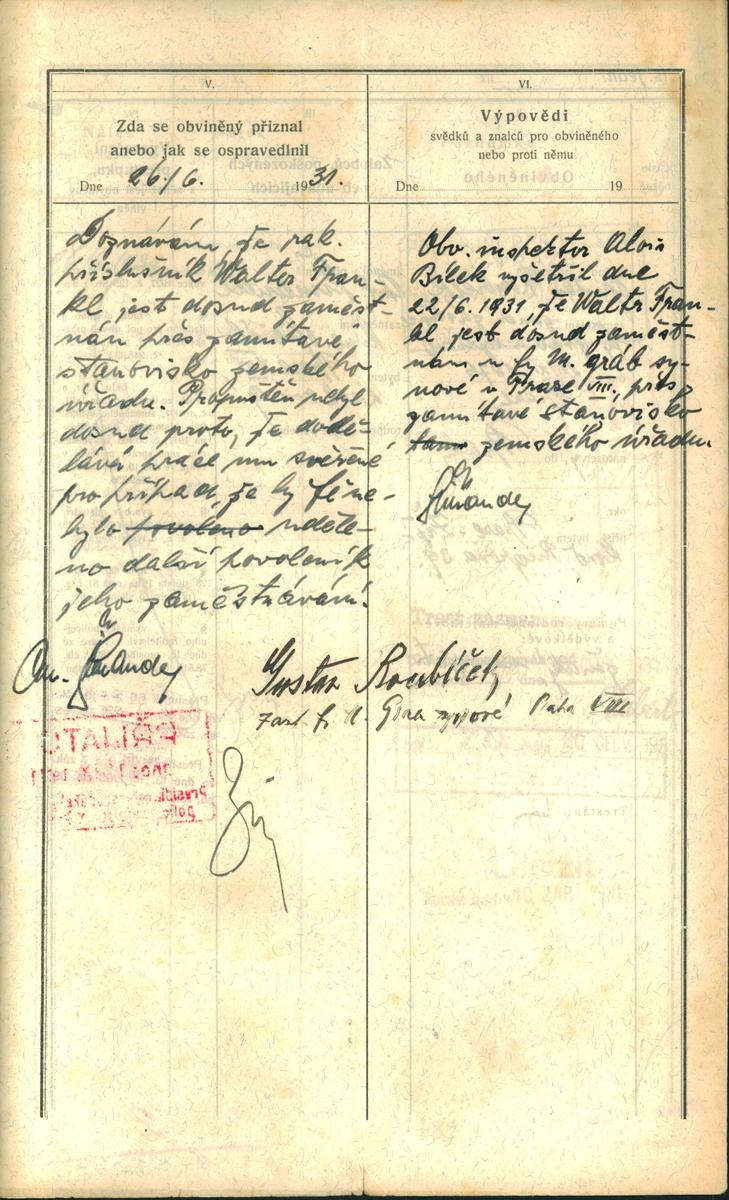 V.
Zda se obviněný přiznal
anebo jak se ospravedlnil
Dne 26/6. 1931.
Doznávám, že rak.
příslušník Walter Fran-
kl jest dosud zaměst-
nán přes zamítavé
stanovisko zemského
úřadu. Propuštěn nebyl
dosud proto, že dodě-
lává práce mu svěřené
pro případ, že by že ne-
bylo povoleno uděle-
no další povolení k
jeho zaměstnávání.
Gustav Roubíček
zast. f. M. Grába synové Praha VIII
VI.
Výpovědi
svědků a znalců pro obviněného
nebo proti němu
Dne 19
Obv. inspektor Alois
Bílek vyšetřil dne
22/6. 1931, že Waltr Fran-
kl jest dosud zaměst-
nán u fy M. Gráb sy-
nové v Praze VIII., přes
zamítavé stanovisko
zemského úřadu.